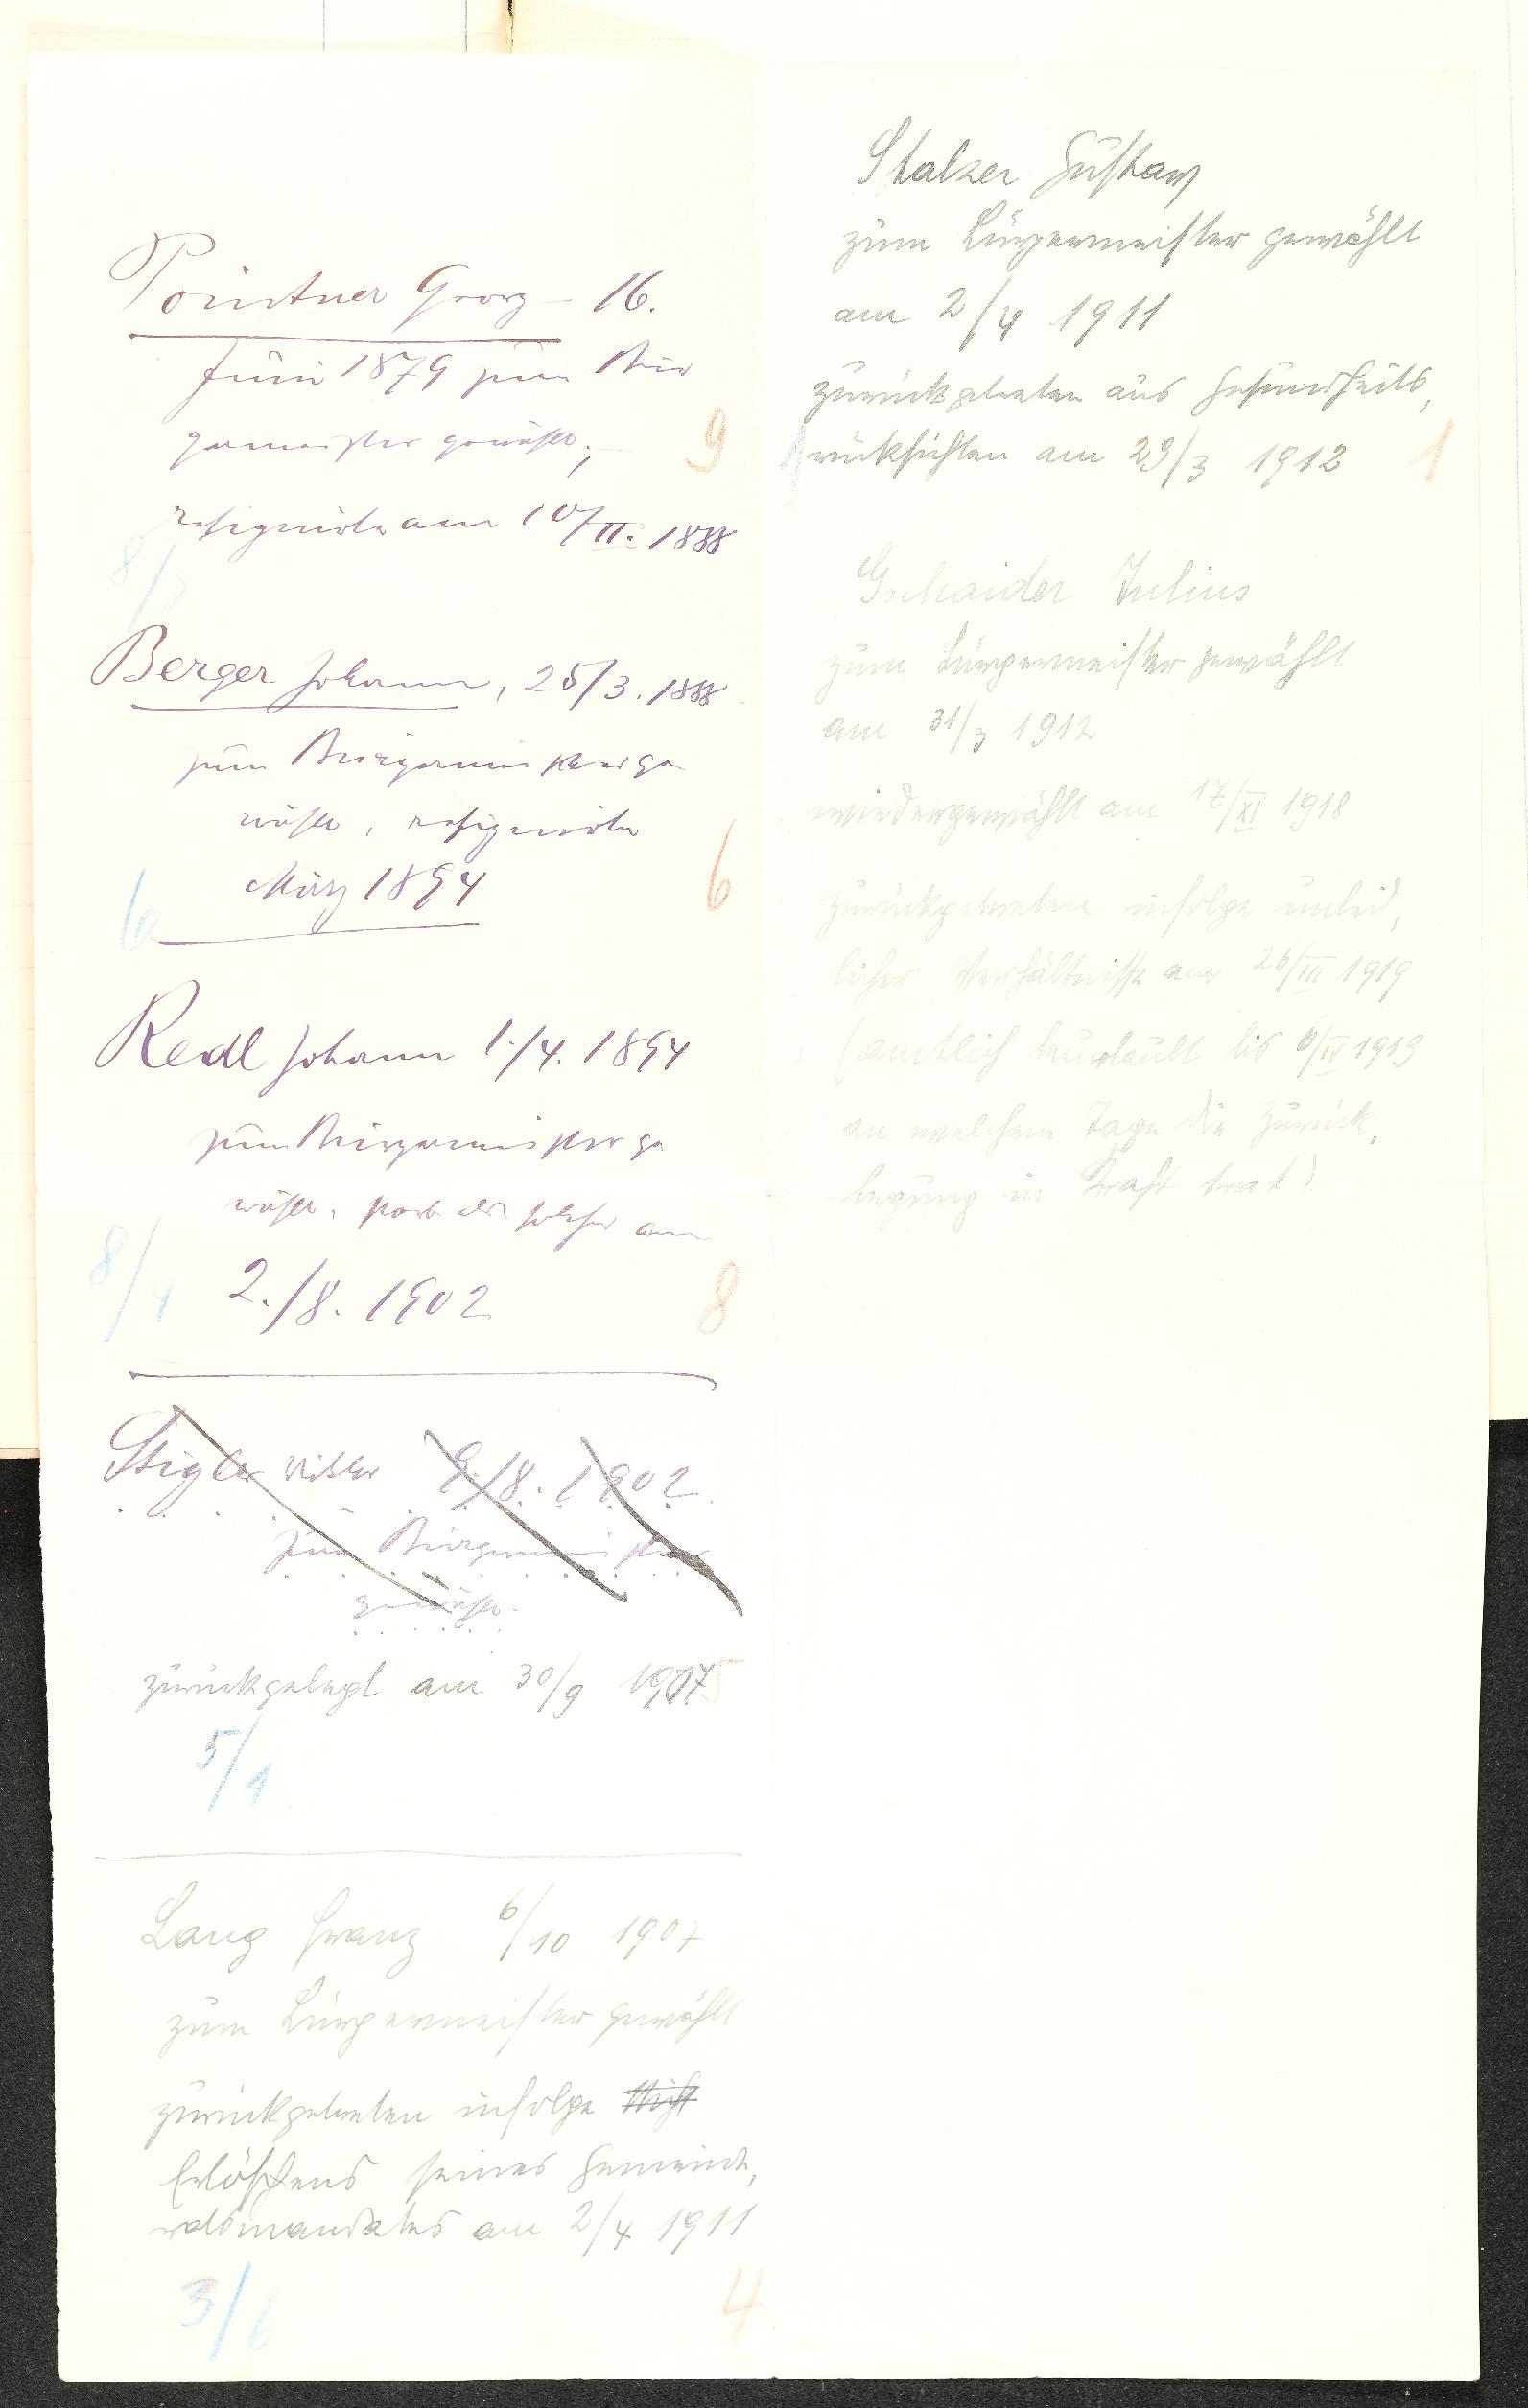 Pointner Georg – 16.
Juni 1879 zum Bür
germeister gewählt;
9
resignirte am 10/II. 1888
8/
Berger Johann, 25/3. 1888
zum Bürgermeister ge
wählt, resignirte
März 1894
6
6
Redl Johann 1./4. 1894
zum Bürgermeister ge
wählt, starb als solcher am
2./8. 1902
8/4
8
Stigler 9./8. 1902
zum Bürgermeister
gewählt.
zurückgelegt am 30/9 1907
5
5/1
Lang Franz 6/10 1907
zum Bürgermeister gewählt
zurückgetreten infolge
Erlöschens seines Gemeinde,
ratsmandates am 2/4 1911
3/6
4
Stalzer Gustav
zum Bürgermeister gewählt
am 2/4 1911
zurückgetreten aus Gesundheits,
rücksichten am 29/3 1912
1
1
Gschaider Julius
zum Bürgermeister gewählt
am 31/3 1912
wiedergewählt am 17/XI 1918
zurückgetreten infolge unleid,
licher Verhältnisse am 26/III 1919
(amtlich beurlaubt bis 6/IV 1919
an welchem Tage die Zurück,
legung in Kraft trat)